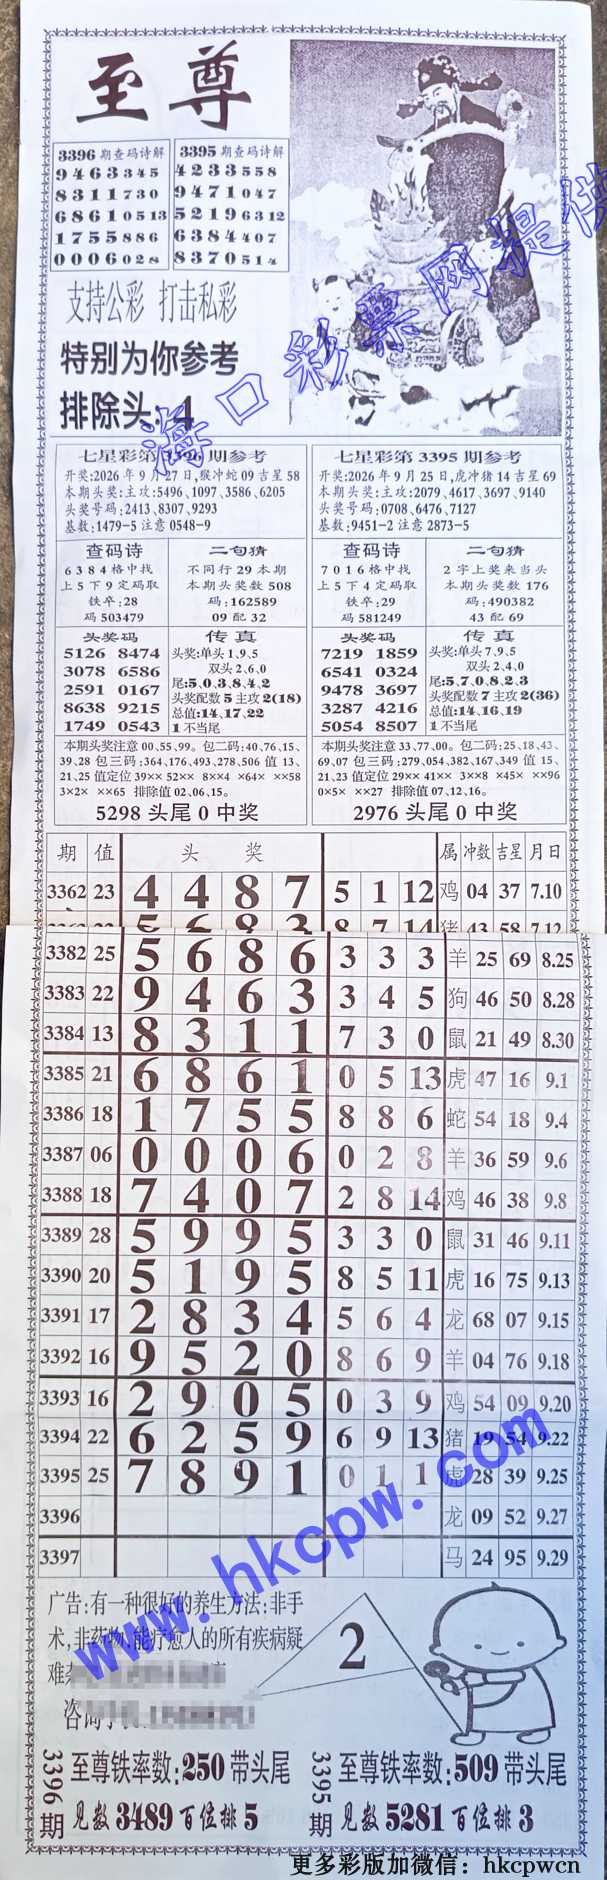 至尊
3396期查码诗解
9463345
8311730
68610513
1755886
0006028
3395期查码诗解
4233558
9471047
52196312
6384407
8370514
支持公彩 打击私彩
特别为你参考
排除头:4
海口彩票网提供
七星彩第3396期参考
开奖:2026年9月27日,猴冲蛇09吉星58
本期头奖:主攻:5496,1097,3586,6205
头奖号码:2413,8307,9293
基数:1479-5注意0548-9
查码诗
6384格中找
上5下9定码取
铁卒:28
码503479
二句猜
不同行29本期
本期头奖数508
码:162589
09配32
头奖码
5126 8474
3078 6586
2591 0167
8638 9215
1749 0543
传真
头奖:单头1,9,5
双头2,6,0
尾:5,0,3,8,4,2
头奖配数5主攻2(18)
总值:14,17,22
1不当尾
本期头奖注意00,55,99。包二码:40,76,15,
39,28包三码:364,176,493,278,506值13,
21,25值定位39×× 52×× 8××4 ×64× ××58
3×2× ××65 排除值02,06,15。
5298头尾0中奖
七星彩第3395期参考
开奖:2026年9月25日,虎冲猪14吉星69
本期头奖:主攻:2079,4617,3697,9140
头奖号码:0708,6476,7127
基数:9451-2注意2873-5
查码诗
7016格中找
上5下4定码取
铁卒:29
码581249
二句猜
2字上奖来当头
本期头奖数176
码:490382
43配69
头奖码
7219 1859
6541 0324
9478 3697
3287 4216
5054 8507
传真
头奖:单头7,9,5
双头2,4,0
尾:5,7,0,8,2,3
头奖配数7主攻2(36)
总值:14,16,19
1不当尾
本期头奖注意33,77,00。包二码:25,18,43,
69,07包三码:279,054,382,167,349值15,
21,23值定位29×× 41×× 3××8 ×45× ××96
0×5× ××27 排除值07,12,16。
2976头尾0中奖
期 值 头奖 属 冲数 吉星 月日
3362 23 4 4 8 7 5 1 12 鸡 04 37 7.10
5 6 8 3 8 7 14 猪 43 58 7.12
3382 25 5 6 8 6 3 3 3 羊 25 69 8.25
3383 22 9 4 6 3 3 4 5 狗 46 50 8.28
3384 13 8 3 1 1 7 3 0 鼠 21 49 8.30
3385 21 6 8 6 1 0 5 13 虎 47 16 9.1
3386 18 1 7 5 5 8 8 6 蛇 54 18 9.4
3387 06 0 0 0 6 0 2 8 羊 36 59 9.6
3388 18 7 4 0 7 2 8 14 鸡 46 38 9.8
3389 28 5 9 9 5 3 3 0 鼠 31 46 9.11
3390 20 5 1 9 5 8 5 11 虎 16 75 9.13
3391 17 2 8 3 4 5 6 4 龙 68 07 9.15
3392 16 9 5 2 0 8 6 9 羊 04 76 9.18
3393 16 2 9 0 5 0 3 9 鸡 54 09 9.20
3394 22 6 2 5 9 6 9 13 猪 19 54 9.22
3395 25 7 8 9 1 0 1 1 虎 28 39 9.25
3396 龙 09 52 9.27
3397 马 24 95 9.29
www.hkcpw.com
广告:有一种很好的养生方法:非手
术,非药物,能疗愈人的所有疾病疑
难
咨询手机:
2
3396期
至尊铁率数:250带头尾
见数3489百位排5
3395期
至尊铁率数:509带头尾
见数5281百位排3
更多彩版加微信:hkcpwcn